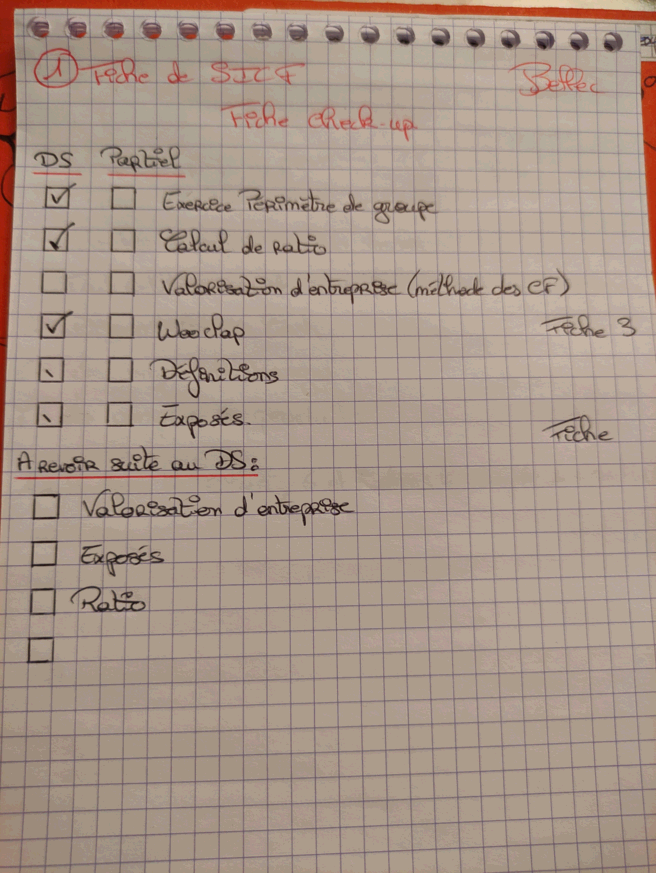 ① Fiche de SICF Bellec
Fiche check-up
DS Partiel
Exercice Périmètre de groupe
Calcul de Ratio
Valorisation d'entreprise (méthode des CF)
Wooclap Fiche 3
Définitions
Exposés. Fiche
A Revoir suite au DS:
Valorisation d'entreprise
Exposés
Ratio